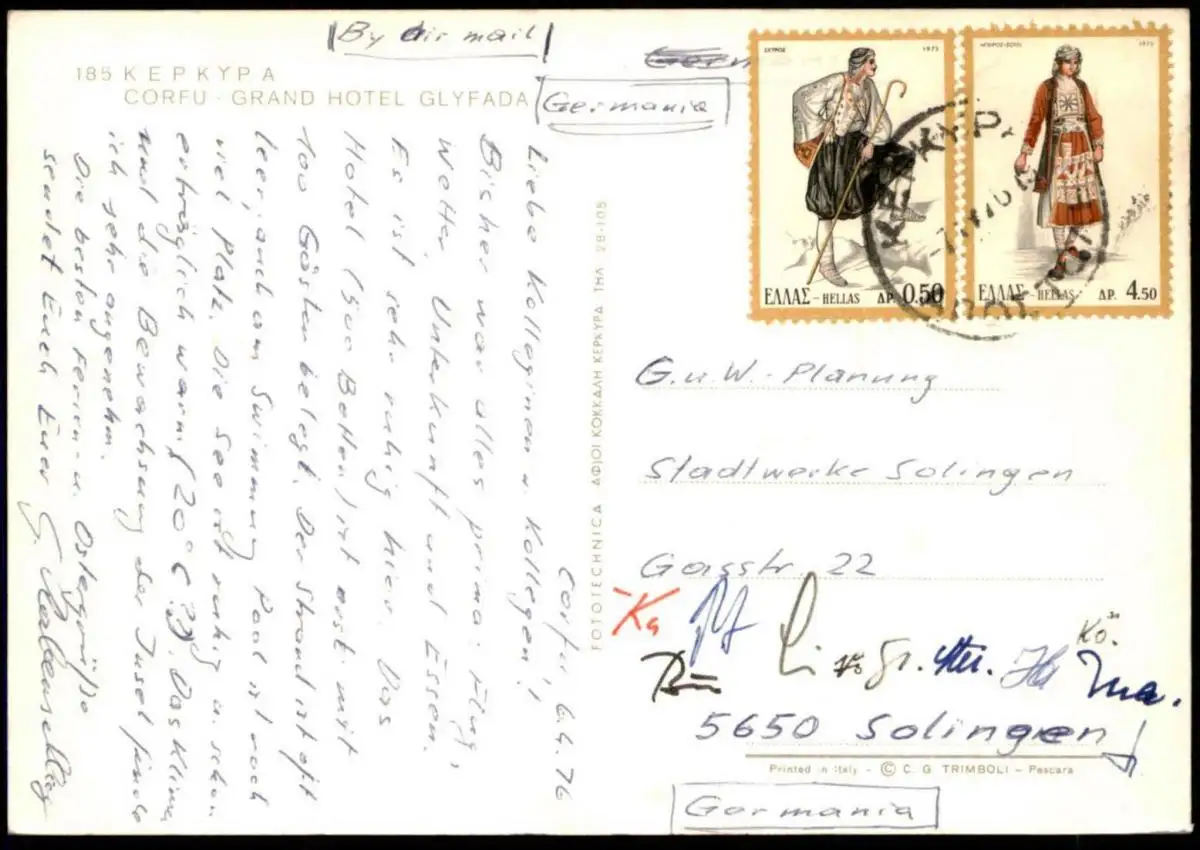 By air mail
185 ΚΕΡΚΥΡΑ
CORFU - GRAND HOTEL GLYFADA
Germania
Corfu, 6.4.76
Liebe Kolleginen u. Kollegen!
Bisher war alles prima: Flug,
Wetter, Unterkunft und Essen.
Es ist sehr ruhig hier. Das
Hotel (500 Betten) ist erst mit
100 Gästen belegt. Der Strand ist oft
leer, auch am Swimming Pool ist noch
viel Platz. Die See ist ruhig u. schon
erträglich warm (20°C ??). Das Klima
und die Bewachsung der Insel finde
ich sehr angenehm.
Die besten Ferien- u. Ostergrüße
sendet Euch Euer G.
FOTOTECHNICA ΑΦ|ΟΙ ΚΟΚΚΑΛΗ ΚΕΡΚΥΡΑ ΤΗΛ 28-105
ΣΚΥΡΟΣ 1973
ΕΛΛΑΣ - HELLAS ΔΡ. 0.50
1973
ΕΛΛΑΣ - HELLAS ΔΡ. 4.50
ΚΕΡΚΥΡΑ
G. u. W. - Planung
Stadtwerke Solingen
Gasstr. 22
Ka
Li
Gr.
Kö.
Ma.
5650 Solingen
Printed in Italy - © C. G. TRIMBOLI - Pescara
Germania